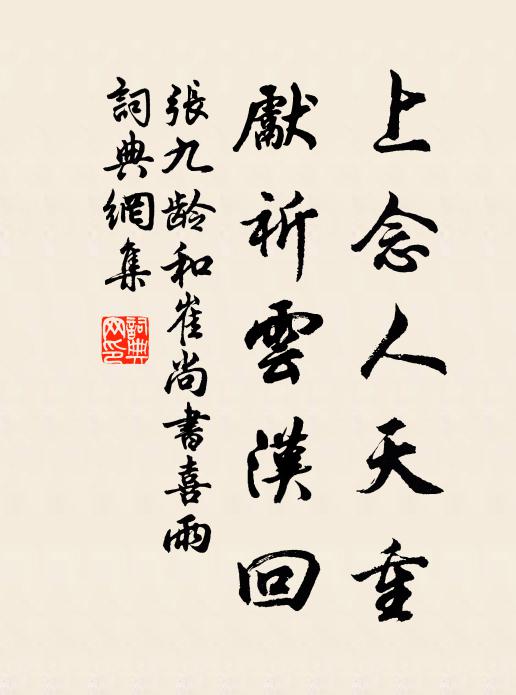 上念人天重
獻祈雲漢回
張九龄和崔尚書喜雨
詞典網集
詞典
网印